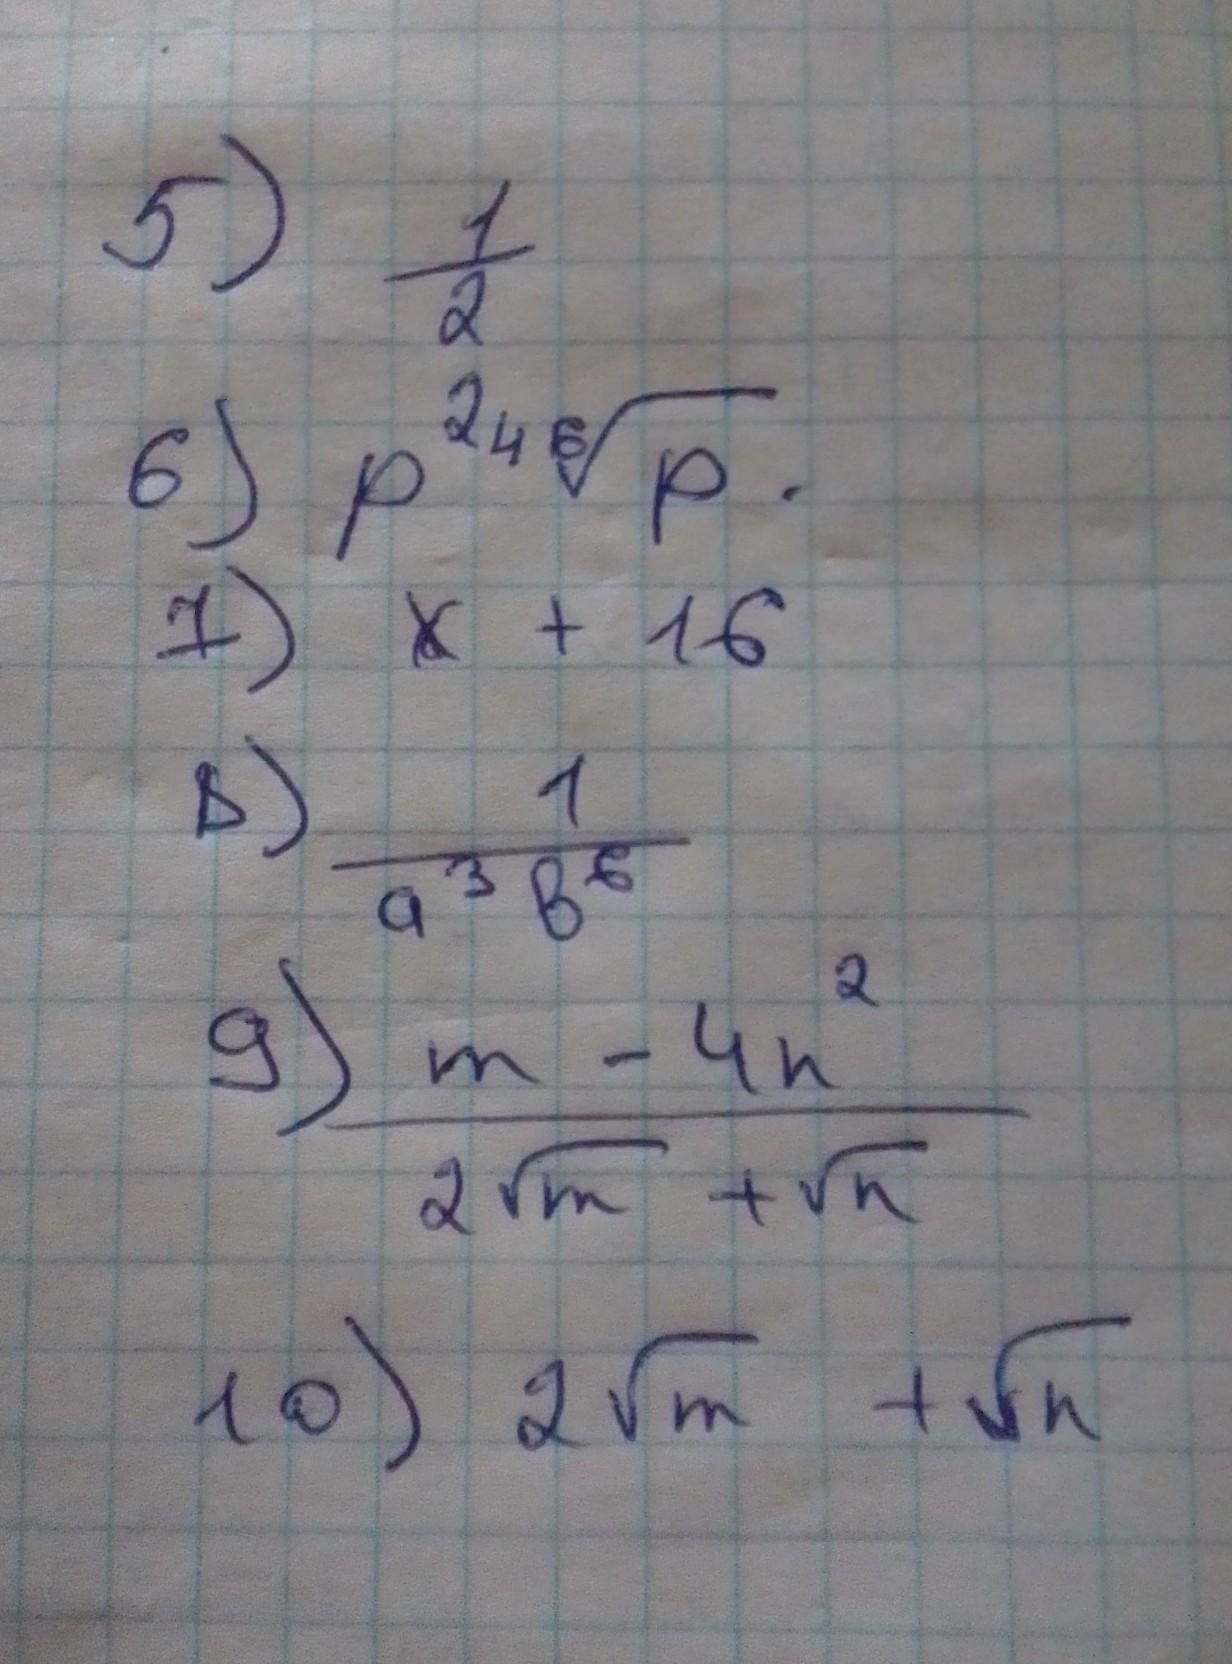 5) 1/2
6) p²⁴ ⁶√p.
7) x + 16
8) 1/(a³ b⁶)
9) (m - 4n²)/(2√m + √n)
10) 2√m + √n